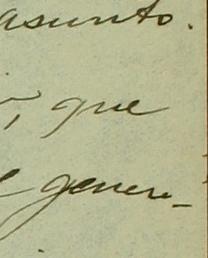 asunto.
, que
genere-